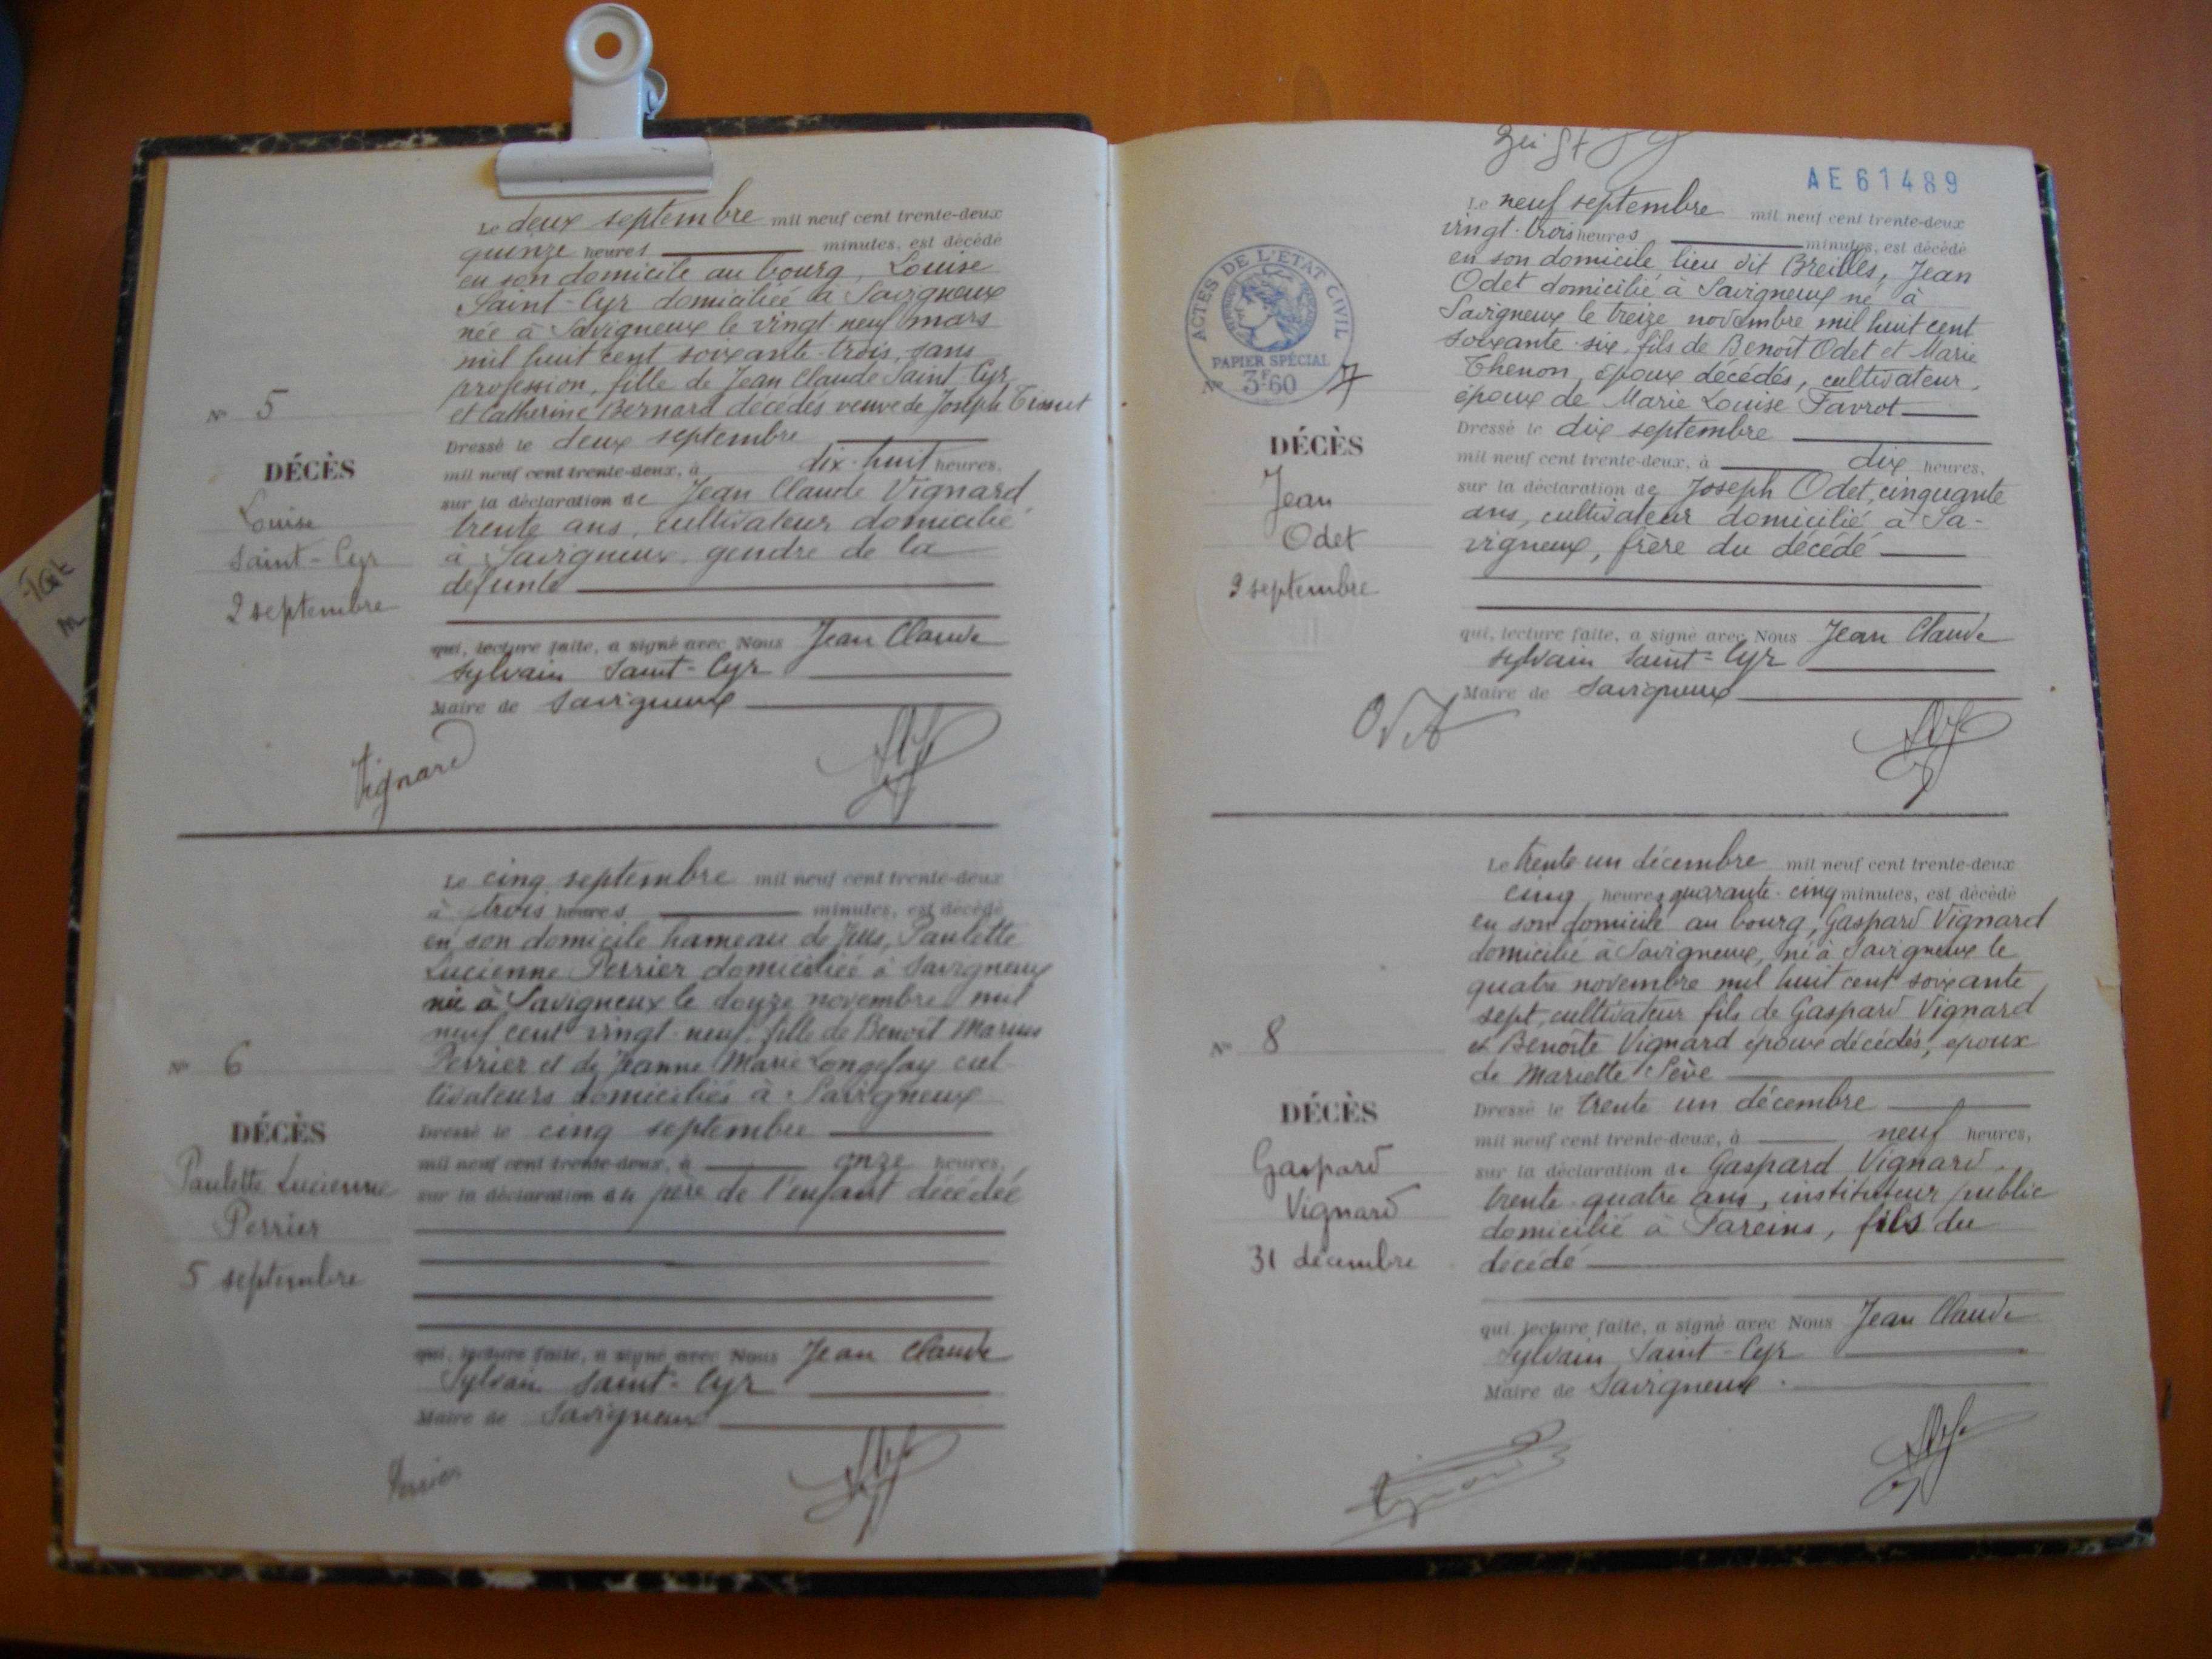 Le deux septembre mil neuf cent trente-deux
quinze heures minutes, est décédé
en son domicile au bourg, Louise
Saint-Cyr domiciliée à Savigneux
née à Savigneux le vingt-neuf mars
mil huit cent soixante-trois, sans
profession, fille de Jean Claude Saint Cyr
et Catherine Bernard décédés veuve de Joseph
N° 5
DÉCÈS
Louise
Saint-Cyr
2 septembre
Dressé le deux septembre
mil neuf cent trente-deux, à dix-huit heures,
sur la déclaration de Jean Claude Vignard
trente ans, cultivateur domicilié
à Savigneux gendre de la
défunte
qui, lecture faite, a signé avec Nous Jean Claude
Sylvain Saint-Cyr
Maire de Savigneux
Vignard
Le cinq septembre mil neuf cent trente-deux
à trois heures minutes, est décédé
en son domicile hameau de Juis, Paulette
Lucienne Perrier domiciliée à Savigneux
née à Savigneux le douze novembre mil
neuf cent vingt-neuf, fille de Benoît Marius
Perrier et de Jeanne Marie Longefay cul-
tivateurs domiciliés à Savigneux
N° 6
DÉCÈS
Paulette Lucienne
Perrier
5 septembre
Dressé le cinq septembre
mil neuf cent trente-deux, à onze heures,
sur la déclaration du père de l'enfant décédée
qui, lecture faite, a signé avec Nous Jean Claude
Sylvain Saint-Cyr
Maire de Savigneux
Perrier
AE61489
ACTES DE L'ÉTAT CIVIL
PAPIER SPÉCIAL
3F60
Le neuf septembre mil neuf cent trente-deux
vingt-trois heures minutes, est décédé
en son domicile lieu dit Breilles, Jean
Odet domicilié à Savigneux né à
Savigneux le treize novembre mil huit cent
soixante-six, fils de Benoît Odet et Marie
Thenon, époux décédés, cultivateur,
époux de Marie Louise Favrot
N° 7
DÉCÈS
Jean
Odet
9 septembre
Dressé le dix septembre
mil neuf cent trente-deux, à dix heures,
sur la déclaration de Joseph Odet, cinquante
ans, cultivateur domicilié à Sa-
vigneux, frère du décédé
qui, lecture faite, a signé avec Nous Jean Claude
Sylvain Saint-Cyr
Maire de Savigneux
Odet
Le trente-un décembre mil neuf cent trente-deux
cinq heures quarante-cinq minutes, est décédé
en son domicile au bourg, Gaspard Vignard
domicilié à Savigneux, né à Savigneux le
quatre novembre mil huit cent soixante
sept, cultivateur fils de Gaspard Vignard
et Benoîte Vignard époux décédés, époux
de Mariette Sève
N° 8
DÉCÈS
Gaspard
Vignard
31 décembre
Dressé le trente un décembre
mil neuf cent trente-deux, à neuf heures,
sur la déclaration de Gaspard Vignard,
trente-quatre ans, instituteur public
domicilié à Fareins, fils du
décédé
qui, lecture faite, a signé avec Nous Jean Claude
Sylvain Saint-Cyr
Maire de Savigneux
Vignard